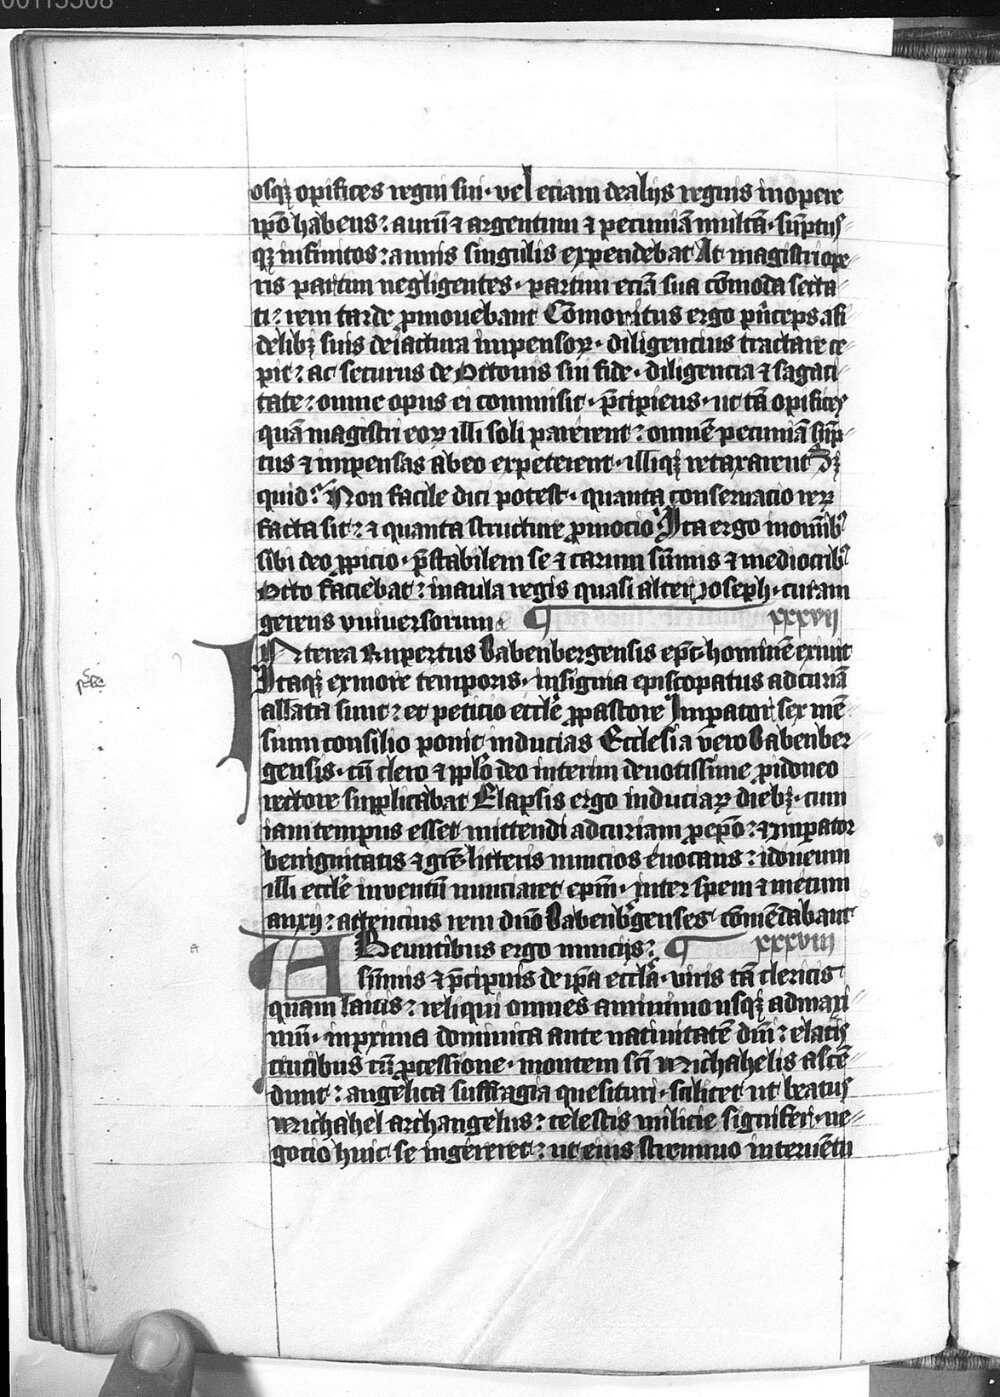 00115508
osq̃ opifices regni sui · vel eciam dealijs regnis inopere
ip̃o habens : aurũ ⁊ argentum ⁊ pecuniam multã · sũptus
q̃ infinitos : annis singulis expendebat At magistri ope
ris partim negligentes · partim eciã sua cõmoda secta
ti : rem tarde ꝓmouebant Cõmonitus ergo p̃nceps a fi
delibꝫ suis de iactura impensoꝝ · diligencius tractare ce
pit : ac securus de Ottonis sui fide · diligencia ⁊ sagaci
tate : omne opus ei commisit · p̃cipiens · ut tã opifices
quã magistri eoꝝ illi soli parerent : omnẽ pecuniã sũp
tus ⁊ impensas ab eo expeterent · illiqꝫ retaxarent
quid : Non facile dici potest · quanta conseruacio reꝝ
facta sit : ⁊ quanta structure ꝓmocio Ita ergo in omĩbꝰ
sibi deo ꝓpicio · p̃stabilem se ⁊ carum sũmis ⁊ mediocribꝰ
Otto faciebat : in aula regis quasi alter Joseph · curam
gerens vniuersorum xxxvii
INterea Rupertus Babenbergensis ep̃c hominẽ exuit
Itaqꝫ ex more temporis · insignia episcopatus ad curiã
allata sunt : et peticio eccl̃e ꝓ pastore Imperator sex mẽ
sium consilio ponit inducias Ecclesia vero Babenber
gensis · cũ clero ⁊ pp̃lo deo interim deuotissime ꝓ idoneo
rectore supplicabat Elapsis ergo induciaꝝ diebꝫ · cum
iam tempus esset mittendi ad curiam ꝓ ep̃o : ⁊ imꝑator
benignitatis ⁊ gr̃e litteris nuncios euocans : idoneum
illi eccl̃e inuentũ nunciaret ep̃m · inter spem ⁊ metum
anxij : attencius rem dño Babenbꝰgenses comẽdabant
ABeuntibus ergo nuncijs : xxxviii
sũmis ⁊ p̃cipuis de ip̃a eccl̃a · viris tã clericis
quam laicis : reliqui omnes a minimo usqꝫ ad maxi
mũ · in proxima dominica ante natiuitatẽ dñi : elatis
crucibus cũ ꝓcessione · montem sc̃i Michahelis ascẽ
dunt : angelica suffragia quesituri · scilicet ut beatus
Michahel archangelus : celestis milicie signifer · ne
gocio huic se ingereret : ut eius strennuo interuẽtu